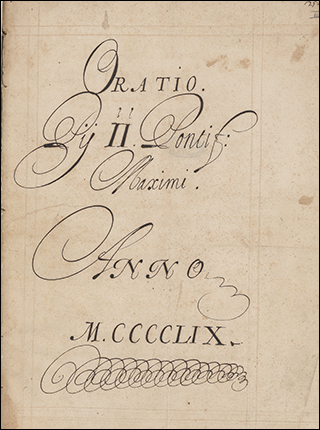 ORATIO.
Pij II. Pontif:
Maximi.
ANNO
M.CCCCLIX.